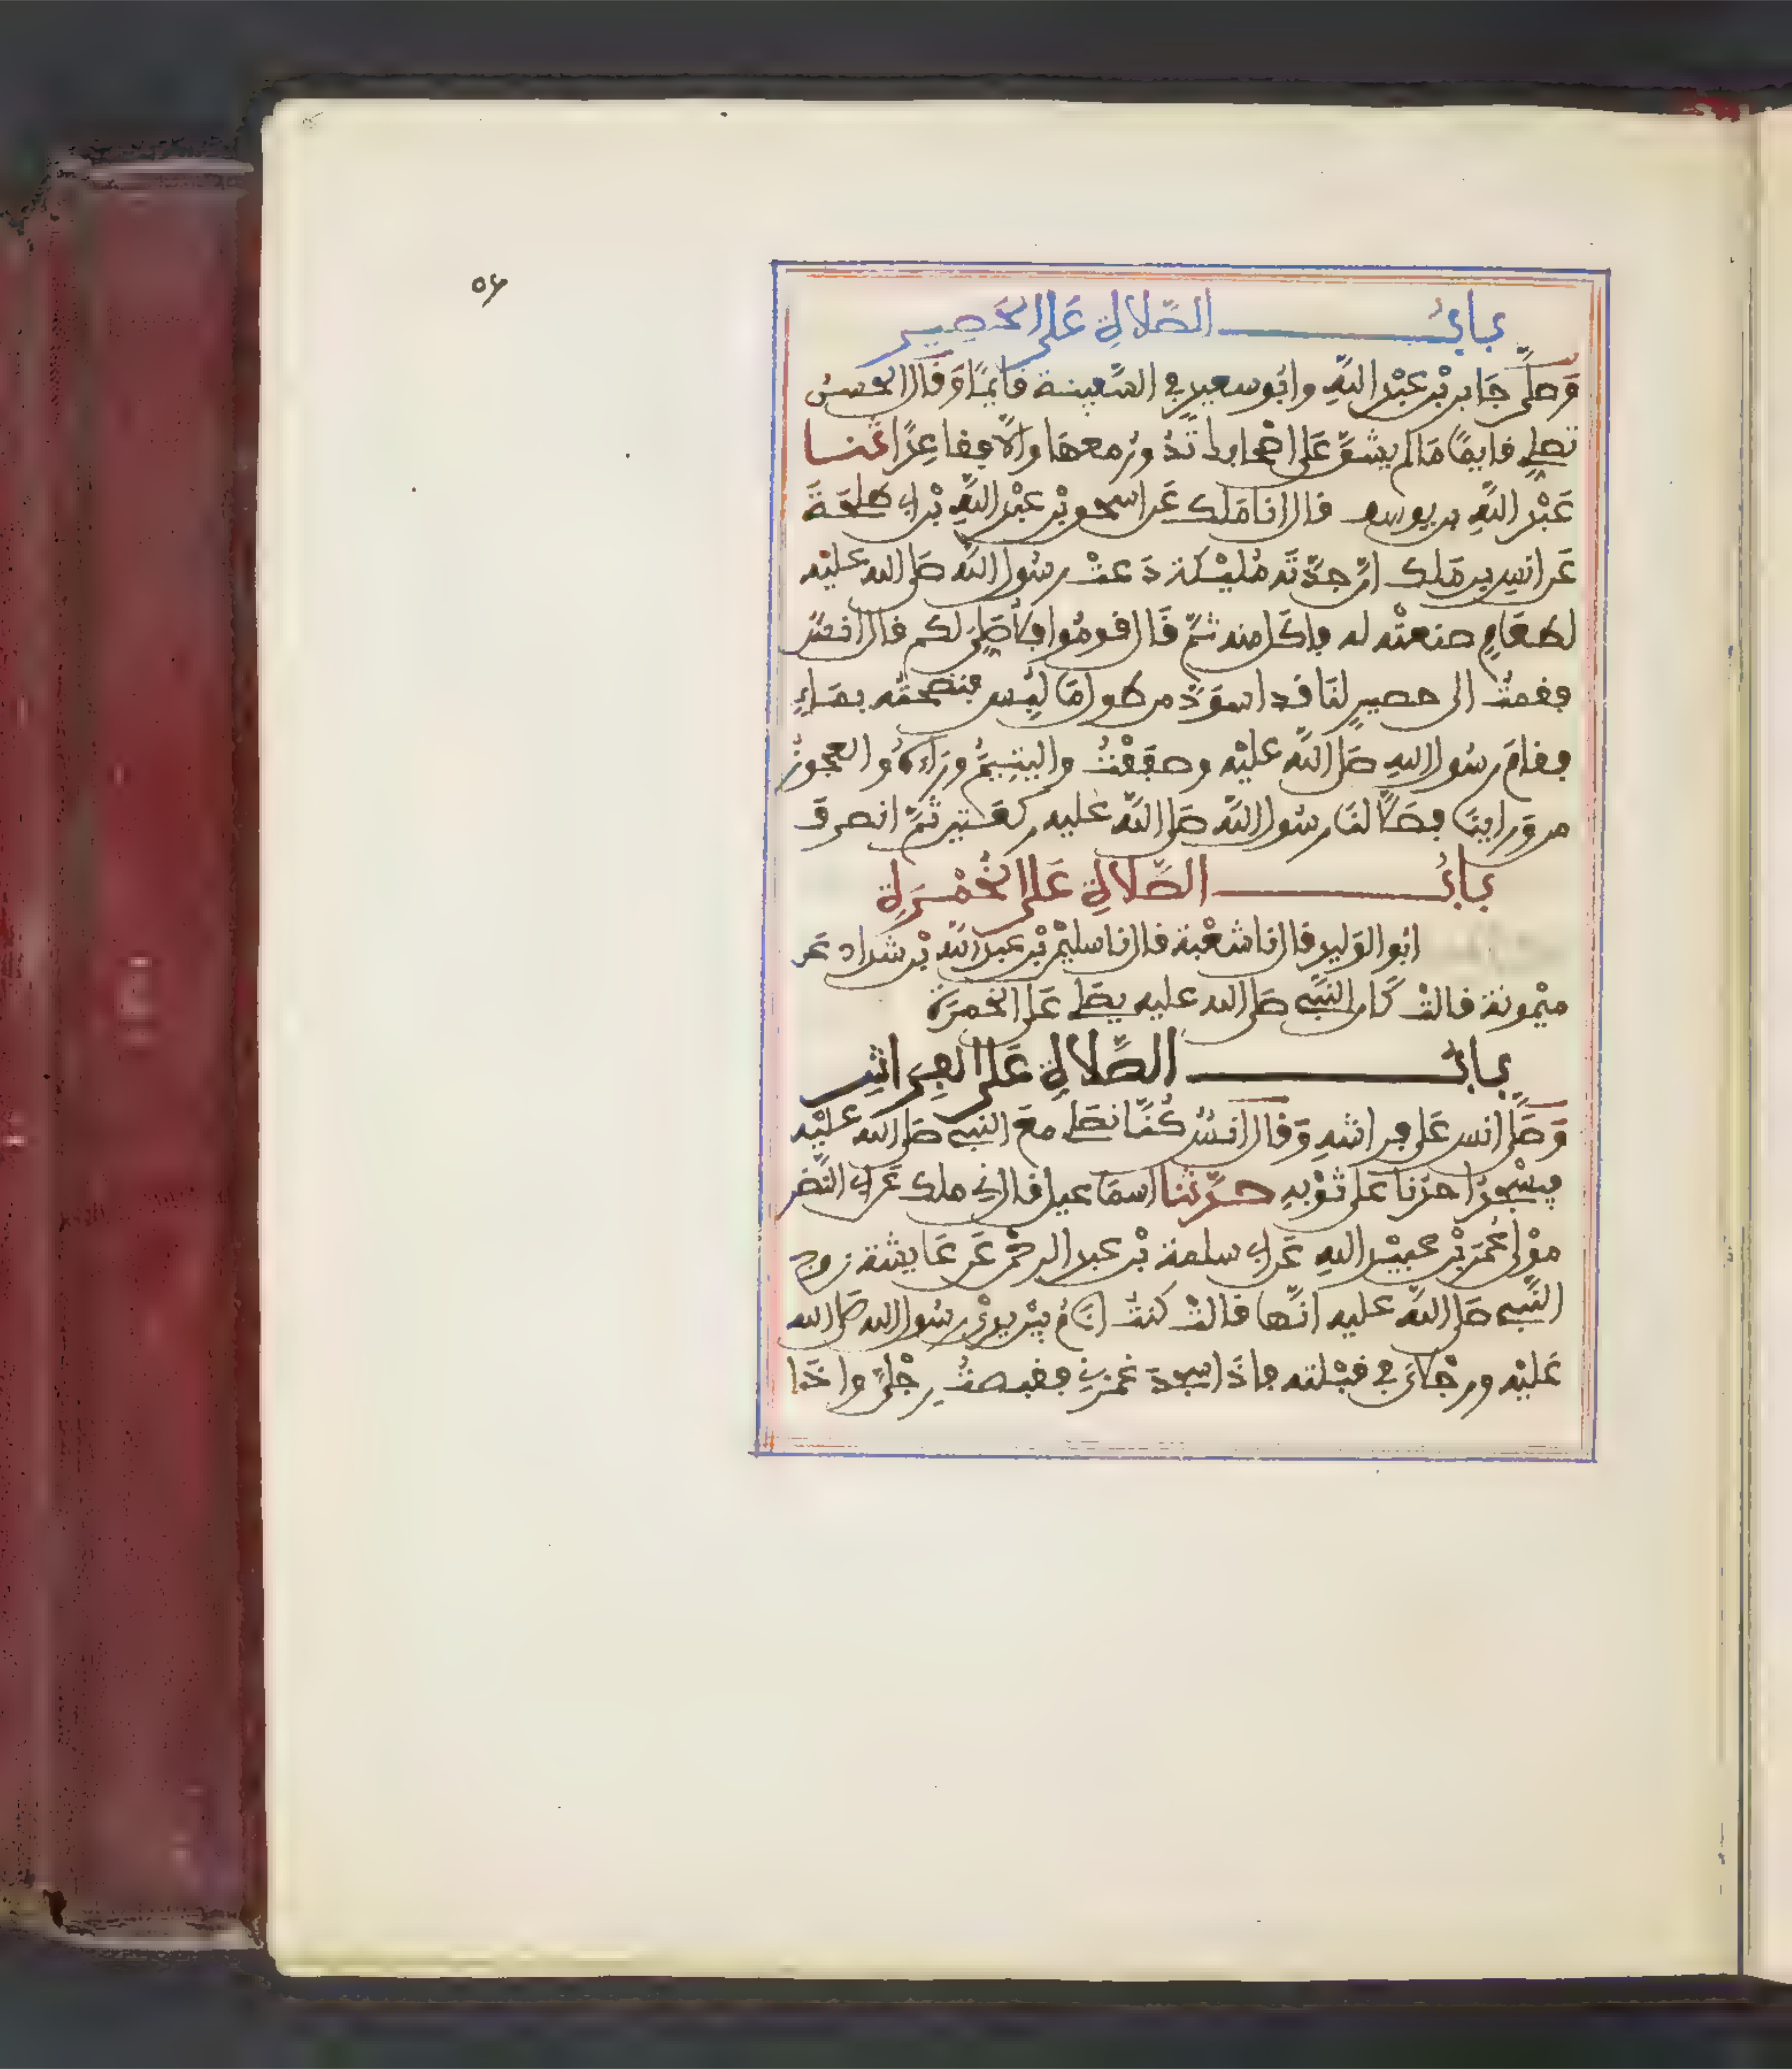 ٥٤
باب الصّلاة عَلى الحَصِير
وَصَلّى جَابر بْن عَبْد اللّهِ وابُو سعيد في السّفينة قايمًا وَقَال الحسنُ
تصلي قايمًا مَا لم يشقّ على اصْحابك تَدُورُ معهَا والاّ فقاعِدًا ثنا
عَبْد اللّهِ بن يوسف قال انا مَلك عَن اسحق بْن عبْد اللّهِ بْن ابي طلحَةَ
عَن انس بن مَلك انّ جدّتَه مُليْكة دَعتْ رسُول اللّه صَلى الله عليْه
لطعَامٍ صنعتْه له فاكل منه ثمّ قَال قومُوا فلأصَلّي لكم قال انسٌ
فقمتُ الى حصيرٍ لنَا قد اسوَدّ من طول مَا لُبِس فنضحتُه بمَاءٍ
فقامَ رسُول الله صَلى اللّه عليْه وصففْتُ واليتيمُ ورَاءهُ والعجوزُ
من وَراينَا فصَلّى لنَا رسُول اللّه صَلى اللّه عليه ركعَتين ثمّ انصرفَ
بابُ الصّلاة عَلى الخُمْرَة
ابو الوَليد قال نا شعْبة قال نا سليمٰن بْن عبد اللّه بْن شداد عَن
ميْمونة قالتْ كَان النّبي صَلى الله عليه يصَلي عَلى الخمرَة
بابُ الصّلاة عَلى الفِرَاش
وَصَلّى انس عَلى فراشهِ وَقال انسٌ كُنّا نصَلي معَ النبي صَلى الله عليْه
فيسْجُدُ احدُنا عَلى ثوْبهِ حدّثنا اسمَاعيل قال ني ملك عَن ابي النّضر
موْلى عُمَر بْن عبيْد اللهِ عَن ابي سلمة بْن عبد الرحمٰن عَن عَايشة زوج
النّبي صَلى اللّه عليه انّها قالتْ كنتُ انَامُ بيْن يديْ رسُول الله صَلى الله
عَليْه ورجْلايَ في قبْلته فاذَا سجدَ غمزني فقبضتُ رِجْليّ واذَا